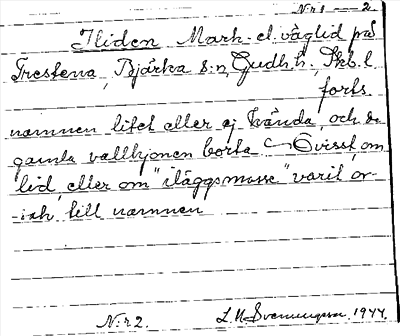 Nr 1 — 2
Iliden Mark- el. väglid på
Trestena, Bjärka s:n, Gudh. h., Skb. l.
forts.
namnen litet eller ej kända, och de
gamla vallhjonen borta – Ovisst, om
lid, eller om "iläggsmosse" varit or-
-sak till namnen
N:r 2. L. M. Svenungsson 1944.